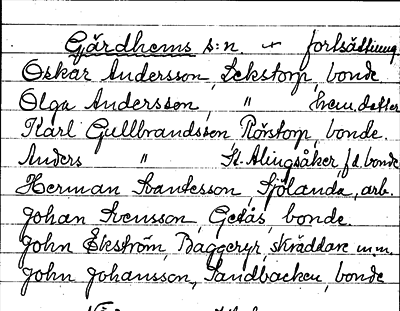 Gärdhems s:n. — fortsättning
Oskar Andersson, Lekstorp, bonde
Olga Andersson, " hem. dotter
Karl Gullbrandsson, Röstorp, bonde.
Anders " St. Alingsåker f.d. bonde
Herman Svantesson, Sjölanda, arb.
Johan Svensson, Getås, bonde.
John Ekström, Baggeryr, skräddare m.m.
John Johansson, Sandbacken, bonde